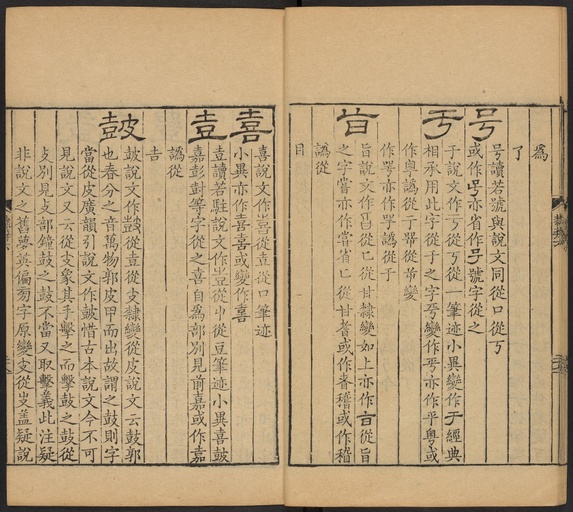 為
了
号
号讀若號與說文同從口從丂
或作号亦省作号號字從之
亏
亏說文作亏從丂從一筆迹小異變作于經典
相承用此字從于之字亏變作亐亦作平粵或
作粤譌從于雩從䨒變
作雩亦作𦍒譌從于
旨
旨說文作𣅀從匕從甘隸變如上亦作旨從旨
之字嘗亦作甞省匕從甘耆或作𦒿稽或作稽
譌從
目
喜
喜說文作喜從壴從口筆迹
小異亦作憙喜或變作喜
壴
壴讀若駐說文作壴從屮從豆筆迹小異喜鼓
嘉彭尌等字從之喜自爲部別見前嘉或作嘉
譌從
吉
皷
皷說文作鼓從壴從支隸變從皮說文云鼓郭
也春分之音萬物郭皮甲而出故謂之鼓則字
當從皮廣韻引說文作皷惜古本說文今不可
見說文又云從支象其手擊之而擊鼓之鼓從
攴別見攴部鐘鼓之鼓不當又取擊義此注疑
非說文之舊蔞英偏㫄字原變支從攴盖疑說